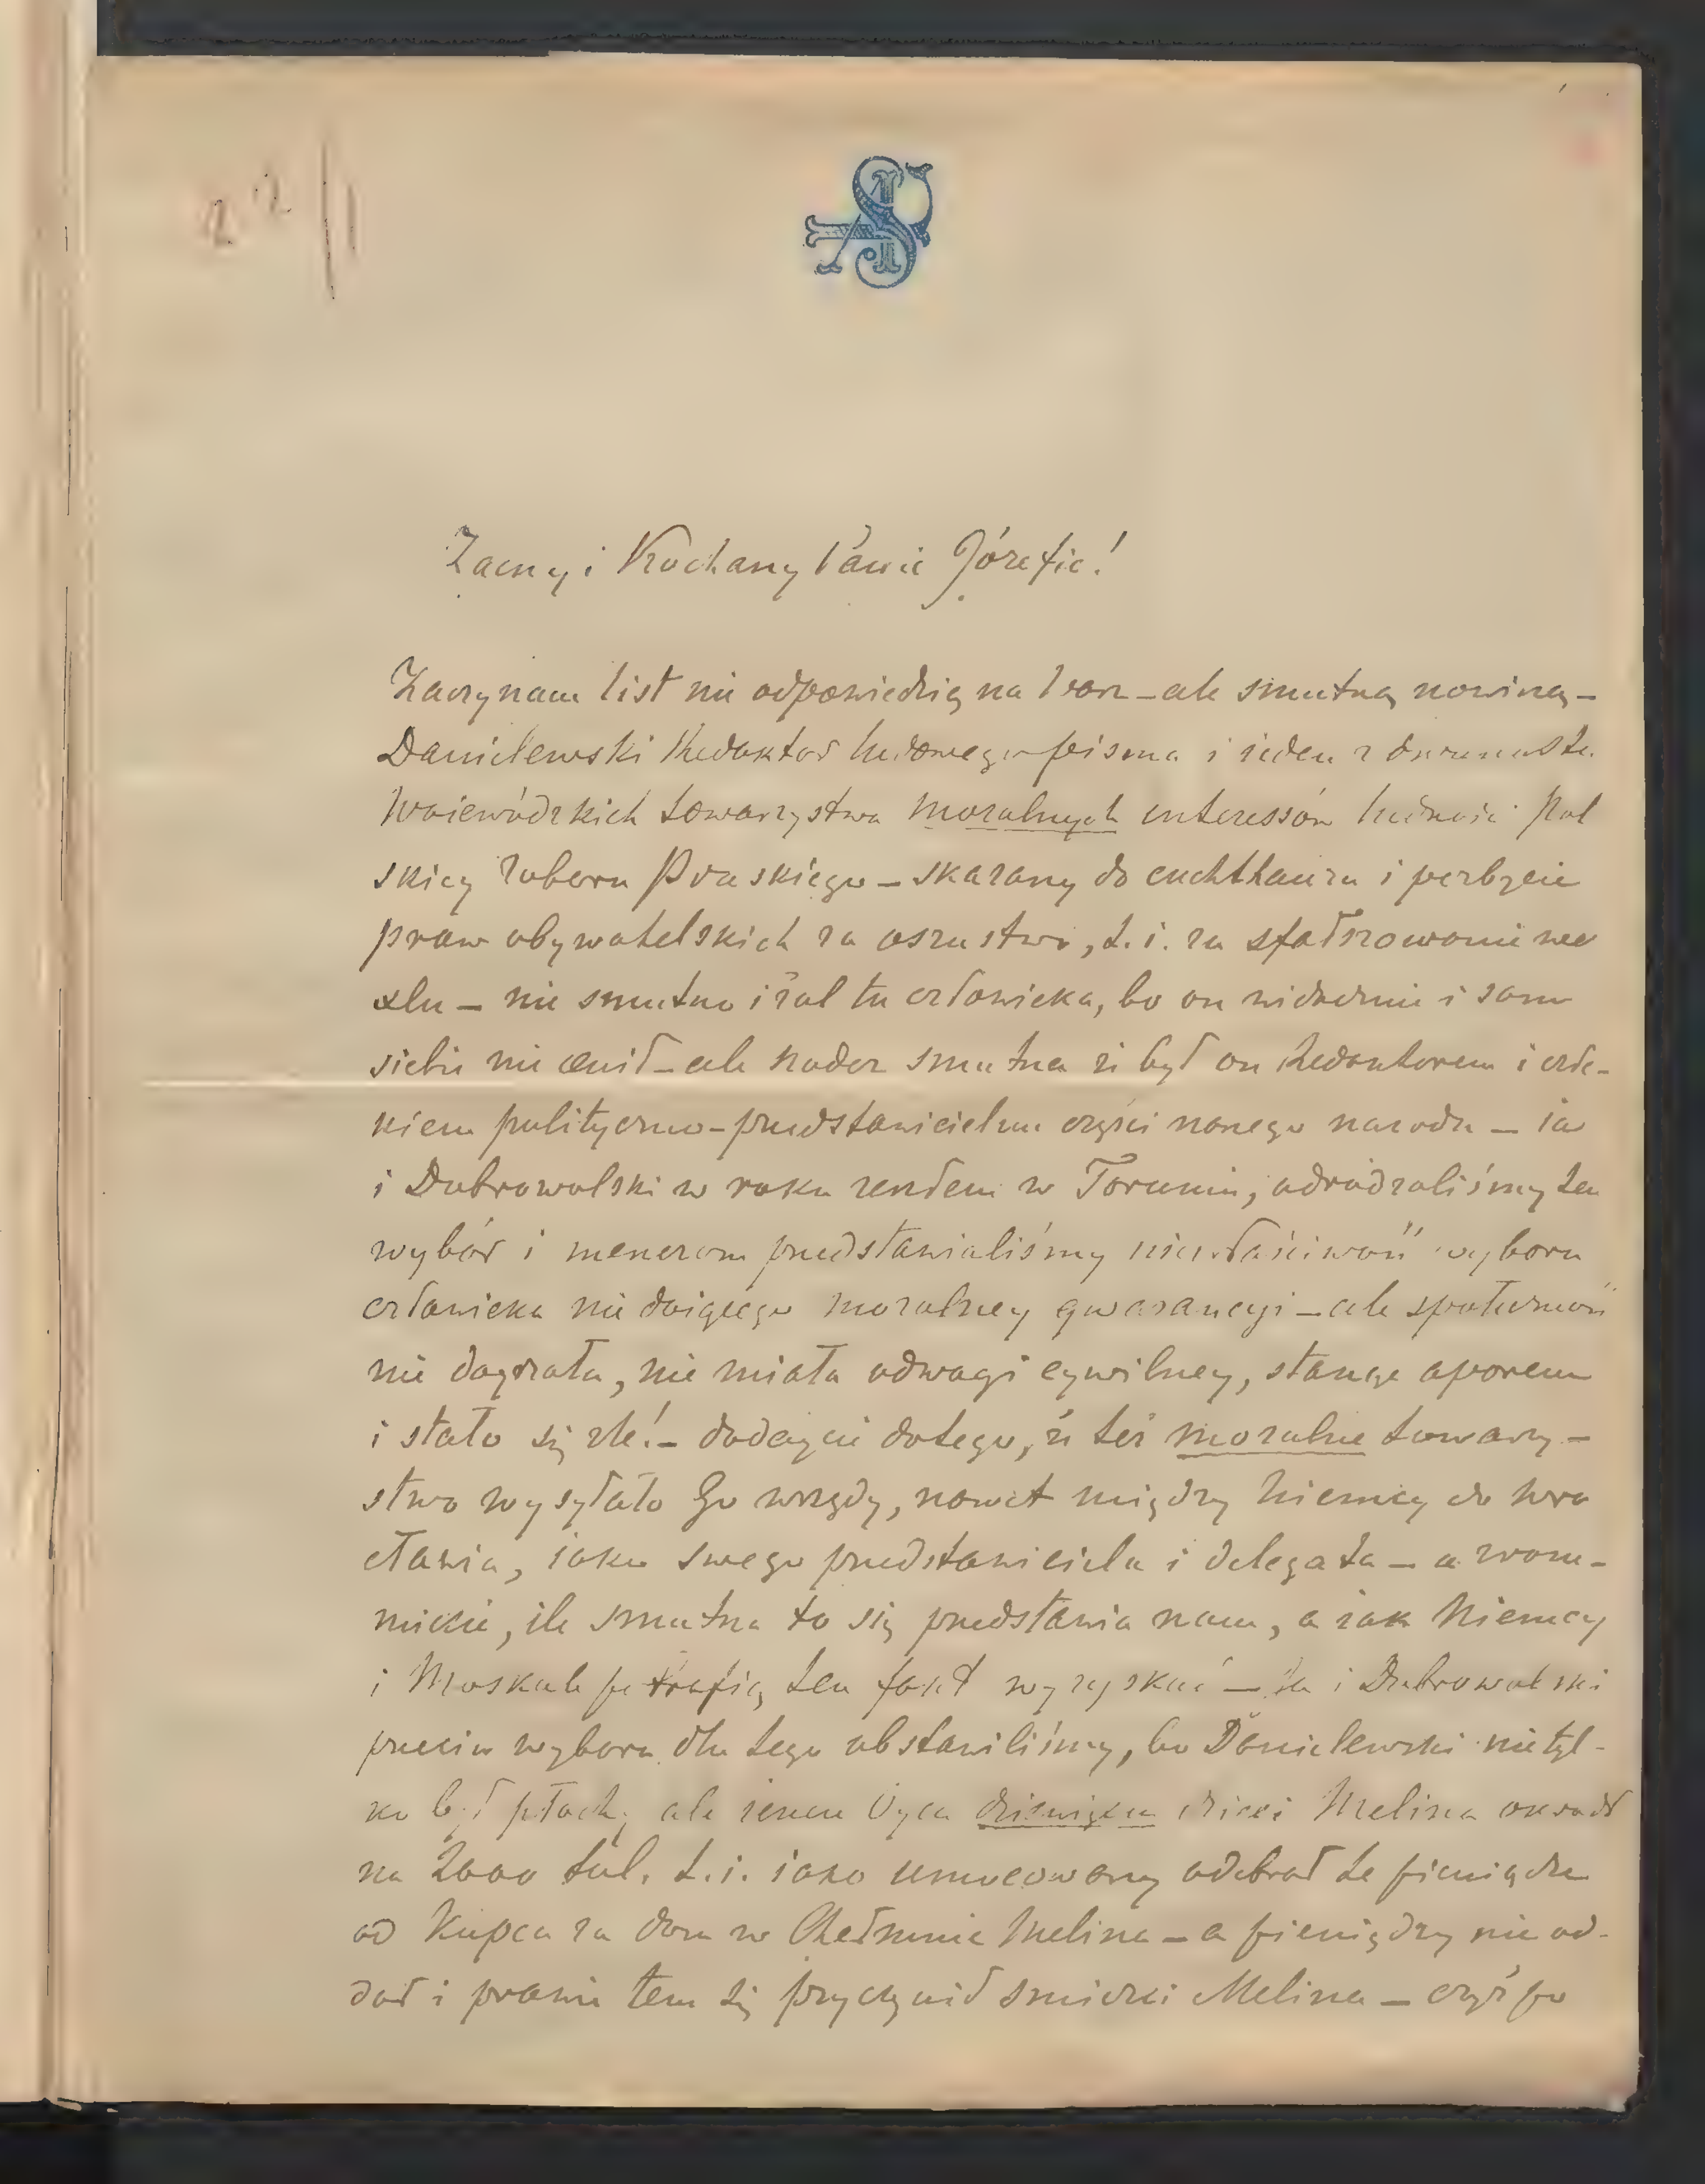 22/1
Zacny i Kochany Panie Józefie!
Zaczynam list nie odpowiedzią na Wasz – ale smutną nowiną –
Danielewski Redaktor ludowego pisma i ieden z dwunastu
Woiewódzkich towarzystwa moralnych interessów ludności Pol
skiey zaboru Pruskiego – skazany do cuchthauzu i pozbycie
praw obywatelskich za oszustwo, t. i. za sfałszowanie we
xlu – nie smutno i żal tu człowieka, bo on widocznie i sam
siebie nie cenił – ale nader smutna że był on Redaktorem i czło-
kiem polityczno-przedstawicielem części naszego narodu – ia
i Dobrowolski w roku zeszłem w Toruniu, odradzaliśmy ten
wybór i menerom przedstawialiśmy niewłaściwość wyboru
człowieka nie daiącego moralney gwarancyi – ale społeczność
nie doyrzała, nie miała odwagi cywilney, stanąć oporem
i stało się źle! – dodaycie do tego, że też moralne towarzy-
stwo wysyłało Go wszędy, nawet między Niemcy do Wro
cławia, iako swego przedstawiciela i delegata – a zrozu-
miecie, ile smutna to się przedstawia nam, a iak Niemcy
i Moskale potrafią ten fakt wyzyskać – Ja i Dobrowolski
przeciw wyboru dla tego obstawiliśmy, bo Danielewski nietyl-
ko był płochy ale ieszcze Oyca dziewięciu dzieci Melina okradł
na 2000 tal. t. i. iako umocowany odebrał te pieniądze
od Kupca za dom w Chełmnie Melina – a pieniędzy nie od-
dał i prawie tem się przyczynił śmierci Melina – czyż po